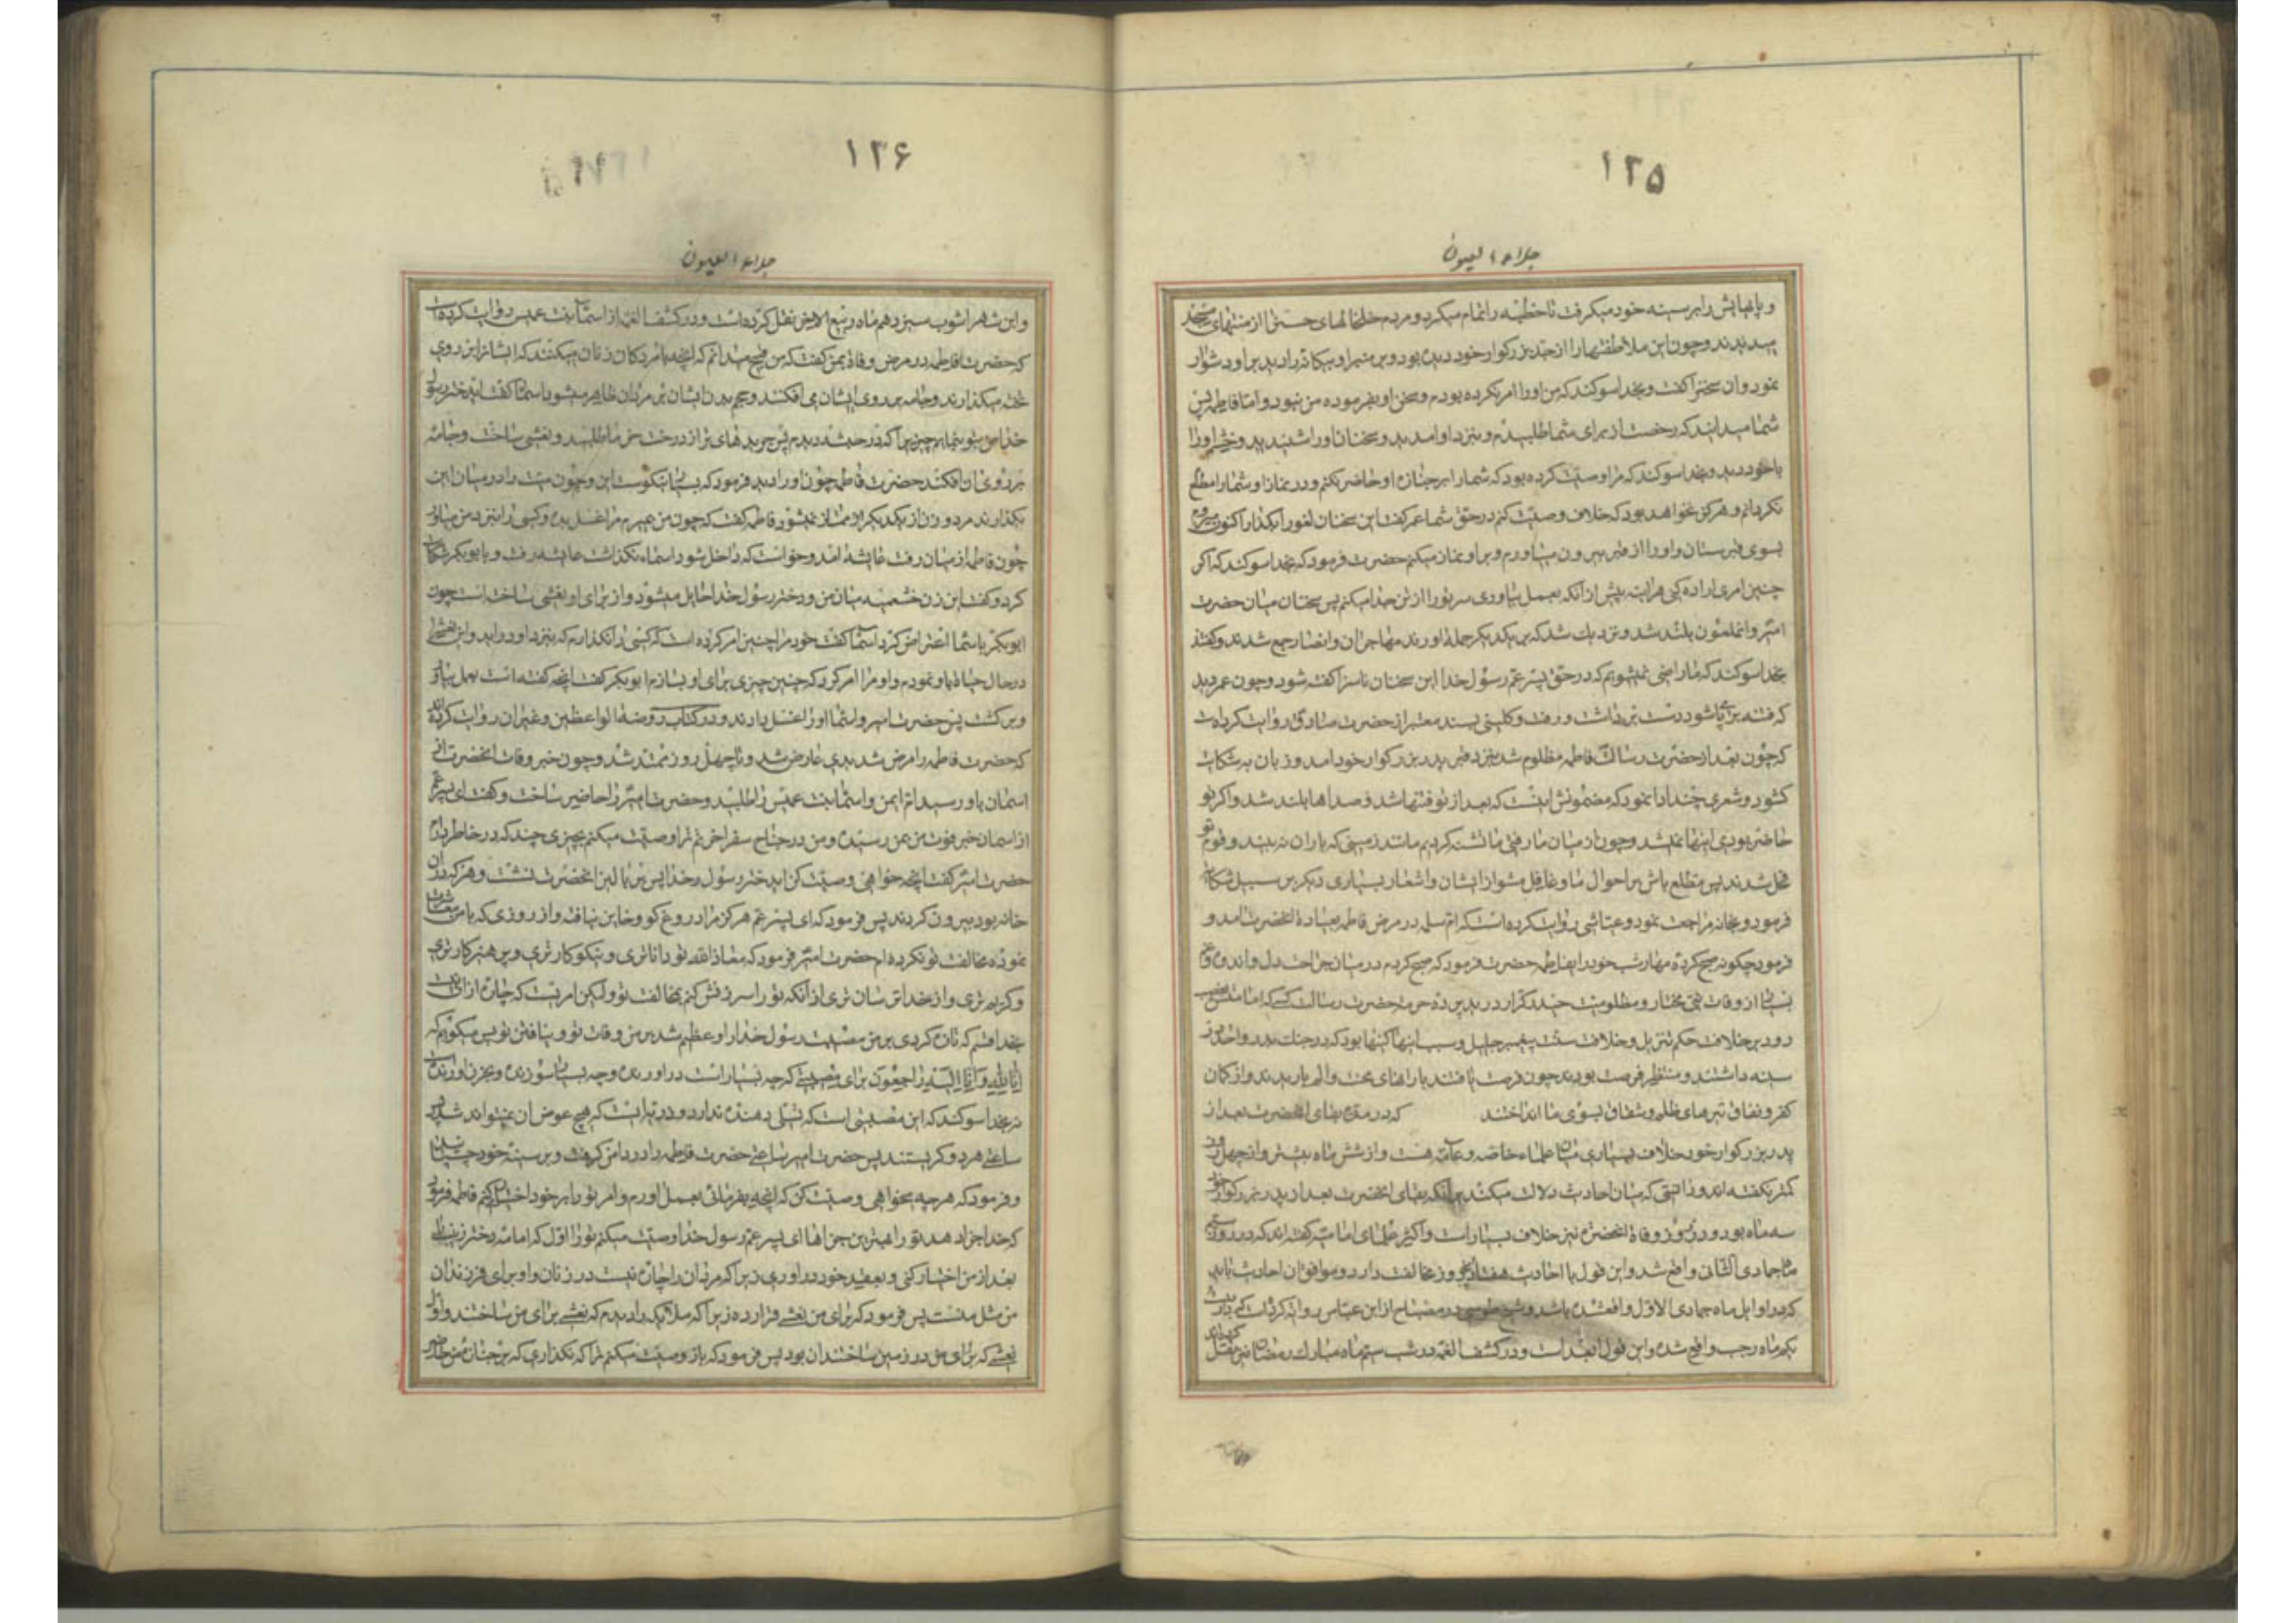 ۱۲۵
جلاء العیون
و پاهایش را بر سینه خود میگرفت تا خطبه را تمام میکرد و مردم خلخالهای حسین را از منتهای مسجد
میدیدند و چون این ملاطفتها را از جد بزرگوار خود دیده بود و بر منبر او بیکانه را دید بر او دشوار
نمود و ان سخن را کفت و بخدا سوکند که من او را امر نکرده بودم و سخن او بفرموده من نبود و اما فاطمه پس
شما میدانید که رخصت از برای شما طلبیدم و بنزد او امدید و سخنان او را شنیدید و خشم او را
با خود دیدید و بخدا سوکند که مرا وصیت کرده بود که شما را بر جنازه او حاضر نکنم و در نماز او شما را مطلع
نکردانم و هرکز نخواهد بود که خلاف وصیت کنم در حق شما عمر کفت این سخنان لغو را بکذار اکنون میروم
بسوی قبرستان و او را از قبر بیرون میاورم و بر او نماز میکنم حضرت فرمود که بخدا سوکند که اکر
چنین امری اراده کنی هراینه پیش از انکه بعمل بیاوری سر تو را از تن جدا میکنم پس سخنان میان حضرت
امیر و انملعون بلند شد و نزدیک شد که بر یکدیکر حمله اورند مهاجران و انصار جمع شدند و کفتند
بخدا سوکند که ما راضی نمیشویم که در حق پسر عم رسول خدا این سخنان ناسزا کفته شود و چون عمر دید
که فتنه برپا شود دست برداشت و رفت و کلینی بسند معتبر از حضرت صادق روایت کرده است
که چون بعد از حضرت رسالت فاطمه مظلوم شد بنزد قبر پدر بزرکوار خود امد و زبان به شکایت
کشود و شعری چند ادا نمود که مضمونش اینست که بعد از تو فتنها شد و صداها بلند شد و اکر تو
حاضر بودی اینها نمیشد و چون از میان ما رفتی ما تشنه کردیم مانند زمینی که باران نه بیند و قوم تو
مختل شدند پس مطلع باش بر احوال ما و غافل مشو از ایشان و اشعار بسیاری دیکر بر سبیل شکایت
فرمود و بخانه مراجعت نمود و عیاشی روایت کرده است که ام سلمه در مرض فاطمه بعیادة انحضرت امد و
فرمود چکونه صبح کرده مهارشب خود را ایفاطمه حضرت فرمود که صبح کردم در میان جراحت دل و اندوه و غم
بسیار از وفات نبی مختار و مظلومیت حیدر کرار دریدند پرده حرمت حضرت رسالت کسیکه امامتش
رود بر خلاف حکم تنزیل و خلاف سنت پیغمبر جلیل و سبب اینها کینها بود که در جنک بدر و احد در
سینه داشتند و منتظر فرصت بودند چون فرصت یافتند بارانهای محنت و الم باریدند و از کمان
کفر و نفاق تیرهای ظلم و شقاق بسوی ما انداختند که در مدة بقای انحضرت بعد از
پدر بزرکوار خود خلاف بسیاری میان علماء خاصه و عامه هست و از شش ماه بیشتر و از چهل روز
کمتر نکفته اند و زا تبی که میان احادیث دلالت میکند بر انکه بقای انحضرت بعد از پدر بزرکوار خود
سه ماه بود و در روز وفاة انحضرت نیز خلاف بسیار است و اکثر علمای امامیه کفته اند که در روز سیم
ماه جمادی الثانی واقع شد و این قول با احادیث هفتاد پنج روز مخالفت دارد و موافق ان احادیث باید
که در اوایل ماه جمادی الاول واقعشده باشد و شیخ طوسی در مصباح از ابن عباس روایة کرده است که در بیست
یکم ماه رجب واقع شده و این قول ابعد است و در کشف الغمه در شب سیم ماه مبارک رمضان نیز نقل کرده اند
۱۲۶
جلاء العیون
و ابن شهراشوب سیزدهم ماه ربیع الاخر نقل کرده است و در کشف الغمه از اسماء بنت عمیس روایت کرده است
که حضرت فاطمه در مرض وفاة بمن کفت که من قبیح میدانم که انچه با مردکان زنان میکنند که ایشانرا بر روی
تخته میکذارند و جامه بر روی ایشان می افکنند و حجم بدن ایشان بر مردان ظاهر میشود اسما کفت ایدختر رسول
خدا من بتو بنمایم چیزیرا که در حبشه دیدم پس جریدهای تر از درخت خرما طلبید و نعشی ساخت و جامه
بر روی ان افکند حضرت فاطمه چون او را دید فرمود که بسیار نیکوست این و چون میت را در میان این
بکذارند مرد و زن از یکدیکر ممتاز نمیشود فاطمه کفت که چون من بمیرم مرا غسل بده و کسی را بنزد من میاور
چون فاطمه از میان رفت عایشه امد و خواست که داخل شود اسماء نکذاشت عایشه رفت و بابوبکر شکایت
کرد و کفت این زن خثعمیه میان من و دختر رسول خدا حایل میشود و از برای او نعشی ساخته است چون
ابوبکر با سما اعتراض کرد اسما کفت خود مرا چنین امر کرده است که کسی را نکذارم که بنزد او در اید و این نعش را
در حال حیاة باو نمودم و او مرا امر کرد که چنین چیزی برای او بسازم ابوبکر کفت انچه کفته است بعمل بیاور
و برکشت پس حضرت امیر و اسما او را غسل دادند و در کتاب روضة الواعظین و غیر ان روایت کرده اند
که حضرت فاطمه را مرض شدیدی عارض شد و تا چهل روز ممتد شد و چون خبر وفات انحضرت از
اسمان باو رسید ام ایمن و اسما بنت عمیس را طلبید و حضرت امیر را حاضر ساخت و کفت ای پسر عم
از اسمان خبر فوت من بمن رسیده و من در جناح سفر اخرتم ترا وصیت میکنم بچیزی چند که در خاطر دارم
حضرت امیر کفت انچه خواهی وصیت کن ایدختر رسول خدا پس بر بالین انحضرت نشست و هرکه در ان
خانه بود بیرون کردند پس فرمود که ای پسر عم هرکز مرا دروغ کو و خاین نیافته و از روزی که با من معاشرت
نموده مخالفت تو نکرده ام حضرت امیر فرمود که معاذالله تو داناتری و نیکوکارتری و پرهیزکارتری
و کریم تری و از خدا ترسان تری از آنکه تو را سرزنش کنم بمخالفت تو و لیکن امریست که چاره از ان نیست
بخدا قسم که تازه کردی بر من مصیبت رسول خدا را و عظیم شد بر من وفات تو و نایافتن تو پس میکویم که
اِنّا لِلّهِ وَ اِنّا اِلَیْهِ راجِعُونَ برای مصیبتی که چه بسیار است دراورنده و چه بسیار سوزنده و بحزن اورنده است
نه بخدا سوکند که این مصیبتی است که تسلی دهنده ندارد و رزیه ایست که هیچ عوض ان نمیتواند شد پس
ساعتی هر دو کریستند پس حضرت امیر ساعتی حضرت فاطمه را در دامن کرفت و بر سینه خود چسبانید
و فرمود که هرچه میخواهی وصیت کن که انچه بفرمائی بعمل اورم و امر تو را بر خود اختیار کنم فاطمه فرمود
که خدا جزا دهد تو را بهترین جزاها ای پسر عم رسول خدا وصیت میکنم تو را اول که امامه دختر زینب را
بعد از من اختیار کنی و بعقد خود در اوری زیرا که مردان را چاره نیست در زنان و او برای فرزندان
من مثل منست پس فرمود که برای من نعشی قرار ده زیرا که ملائکه را دیدم که نعشی برای من ساختند و اول
نعشی که برای من در زمین ساختند ان بود پس فرمود که باز وصیت میکنم ترا که نکذاری که بر جنازه من حاضر